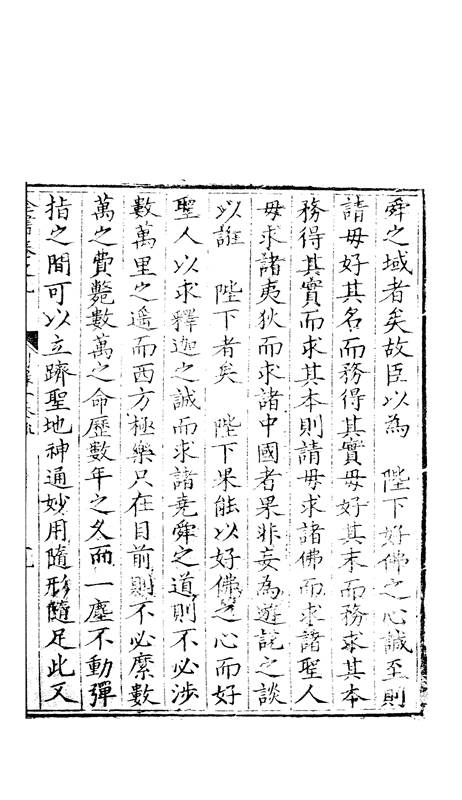 舜之域者矣故臣以為　陛下好佛之心誠至則
請毋好其名而務得其實毋好其末而務求其本
務得其實而求其本則請毋求諸佛而求諸聖人
毋求諸夷狄而求諸中國者果非妄為遊說之談
以誑　陛下者矣　陛下果能以好佛之心而好
聖人以求釋迦之誠而求諸堯舜之道則不必涉
數萬里之遥而西方極樂只在目前則不必縻數
萬之費斃數萬之命歷數年之久而一塵不動彈
指之間可以立躋聖地神通妙用隨形隨足此又